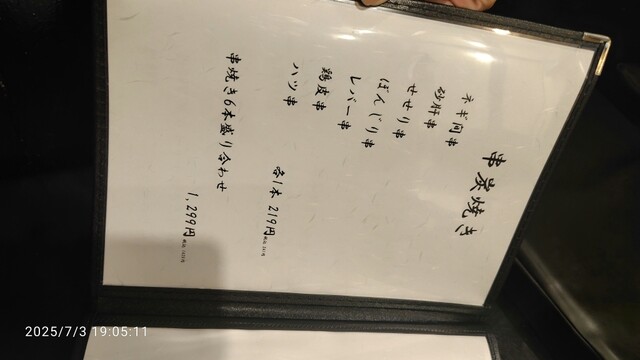 串炭焼き
ネギ間串
砂肝串
せせり串
ぼんじり串
レバー串
鶏皮串
ハツ串
各1本 219円
串焼き6本盛り合わせ
1,299円
2025/7/3 19:05:11